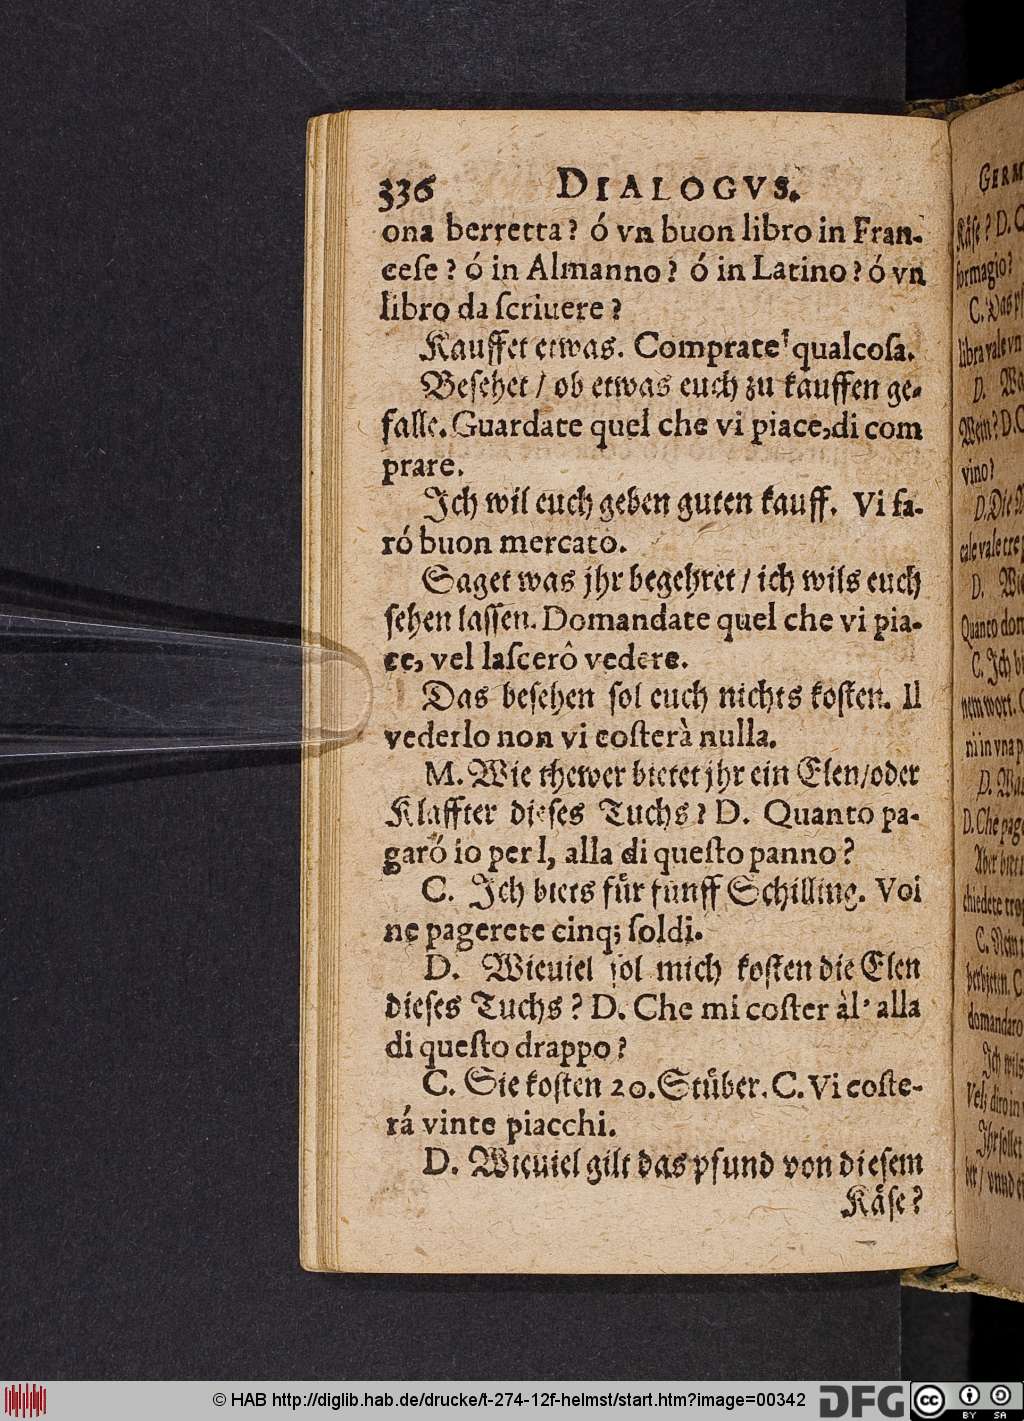 336 DIALOGVS.
ona berretta? ó vn buon libro in Fran-
cese? ó in Almanno? ó in Latino? ó vn
libro da scriuere?
Kauffet etwas. Comprate qualcosa.
Besehet / ob etwas euch zu kauffen ge-
falle. Guardate quel che vi piace, di com
prare.
Ich wil euch geben guten kauff. Vi fa-
ró buon mercato.
Saget was jhr begehret / ich wils euch
sehen lassen. Domandate quel che vi pia-
ce, vel lascerô vedere.
Das besehen sol euch nichts kosten. Il
vederlo non vi costerà nulla.
M. Wie thewer bietet jhr ein Elen/oder
Klaffter dieses Tuchs? D. Quanto pa-
garó io per l, alla di questo panno?
C. Ich biets für fünff Schilling. Voi
ne pagerete cinq; soldi.
D. Wieuiel sol mich kosten die Elen
dieses Tuchs? D. Che mi coster àl' alla
di questo drappo?
C. Sie kosten 20. Stüber. C. Vi coste-
rá vinte piacchi.
D. Wieuiel gilt das pfund von diesem
Käse?
GERM
Käse? D. C
formagio?
C. Das pf
libra vale vn
D. Wa
Wein? D. C
vino?
D. Die
cale vale tre
D. Wie
Quanto dom
C. Ich bi
nem wort. C
ri in vna p
D. Was
D. Che page
Aber biet
chiedete tro
C. Nein
verbieten. C
domandaro
Ich wils
Vel, diro in
Ihr sollet
ber / vnnd
© HAB http://diglib.hab.de/drucke/t-274-12f-helmst/start.htm?image=00342
DFG
CC BY SA